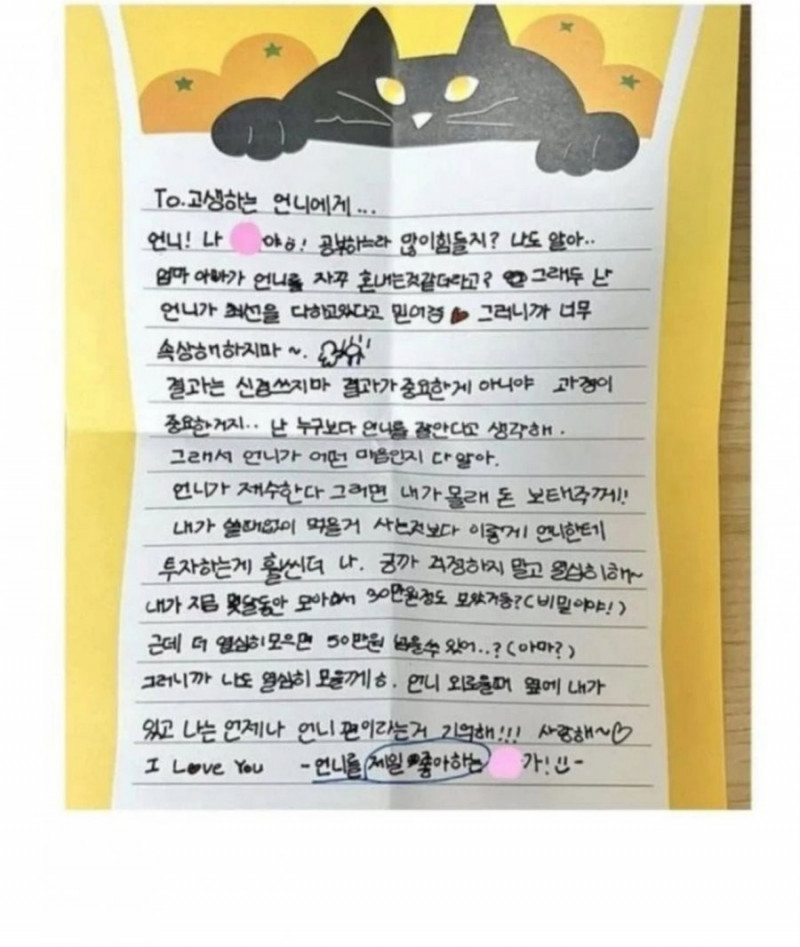 To. 고생하는 언니에게...
언니! 나 야ㅎ! 공부하느라 많이힘들지? 나도 알아..
엄마 아빠가 언니를 자꾸 혼내는것같더라고? 그래두 난
언니가 최선을 다하고있다고 믿어정 그러니까 너무
속상해하지마~.
결과는 신경쓰지마 결과가중요한게 아니야 과정이
중요한거지.. 난 누구보다 언니를 잘안다고 생각해.
그래서 언니가 어떤 마음인지 다 알아.
언니가 재수한다 그러면 내가 몰래 돈 보태주께!!
내가 쓸때없이 먹을거 사는것보다 이렇게 언니한테
투자하는게 훨씬더 나. 궁까 걱정하지 말고 열심히해~
내가 지금 몇달동안 모아서 30만원정도 모았거등?(비밀이야!)
근데 더 열심히모으면 50만원 넘을수 있어..?(아마?)
그러니까 나도 열심히 모을께ㅎ. 언니 외로울때 옆에 내가
있고 나는 언제나 언니 편이라는거 기억해!!! 사랑해~♡
I Love You -언니를 제일 좋아하는 가!!-